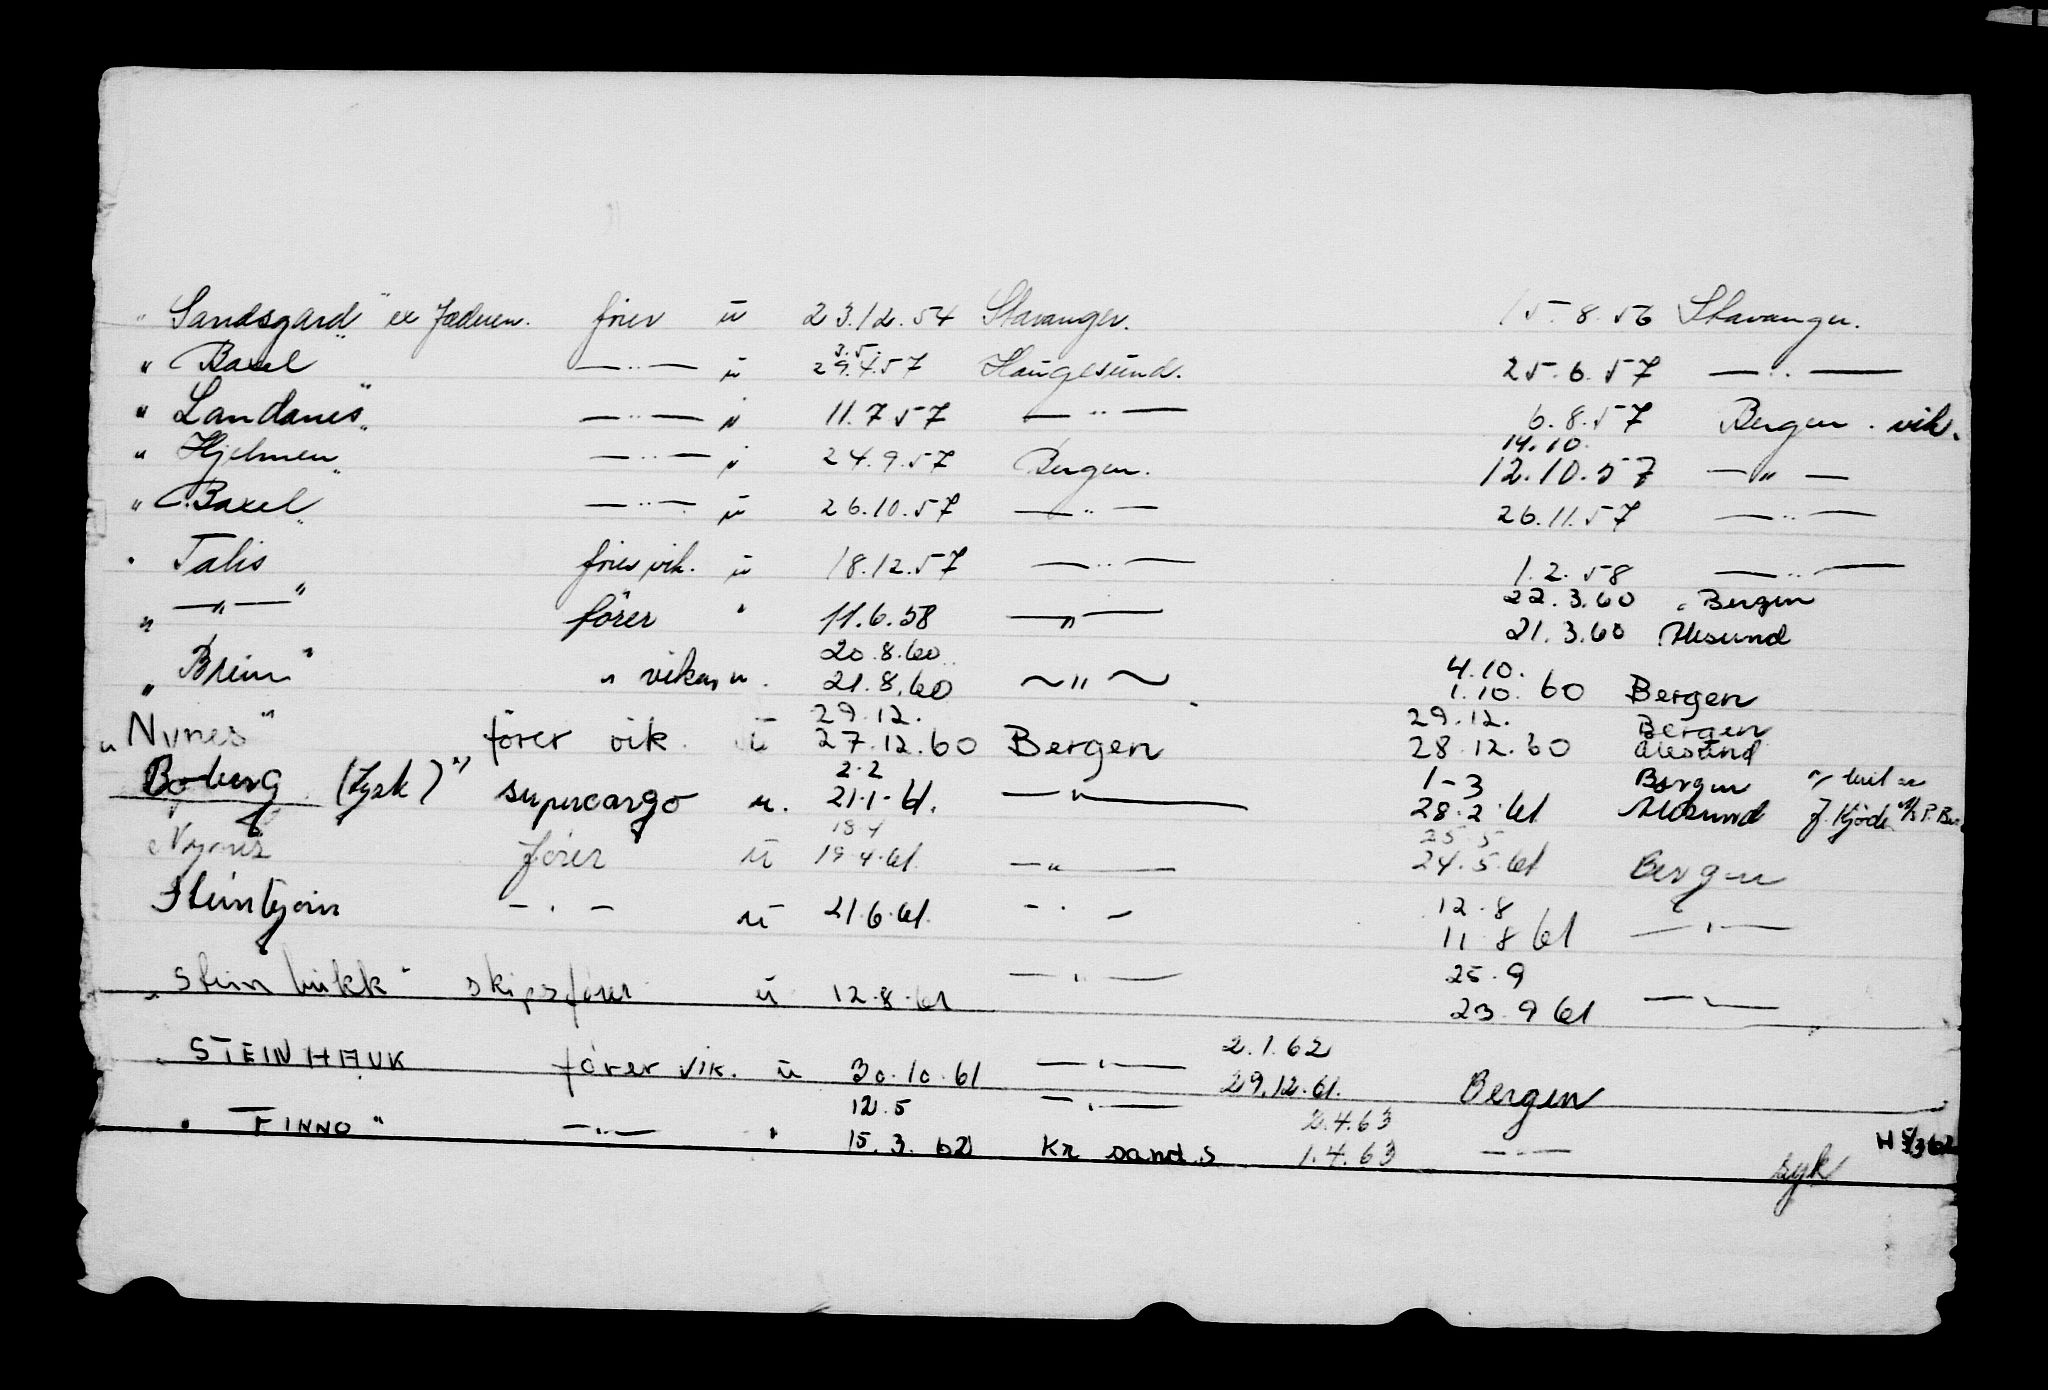 " Sandsgard" ex Jæderen. fører u 23.12.54 Stavanger. 15.8.56 Stavanger.
3.5.
" Baxel — " — u 29.4.57 Haugesund. 25.6.57 — " —
" Landanes" — " — u 11.7.57 — " — 6.8.57 Bergen. vik.
14.10.
" Hjelmen" — " — u 24.9.57 Bergen. 12.10.57 — " —
" Baxel" — " — u 26.10.57 — " — 26.11.57 — " —
" Talis fører vik. u 18.12.57 — " — 1.2.58 — " —
22.3.60 Bergen
" — " — " fører " 11.6.58 — " — 21.3.60 Ålesund
20.8.60 4.10.
" Breim" " vikar u. 21.8.60 — " — 1.10.60 Bergen
29.12. 29.12. Bergen
" Nynes" fører vik. u 27.12.60 Bergen 28.12.60 Ålesund
2.2 1-3 Bergen
Boberg (tysk)" supercargo u. 21-1-61. — " — 28.2.61 Ålesund
18.4 25.5
Nynes fører u 19.4.61 — " — 24.5.61 Bergen
12.8
Steinbjørn — " — u 21.6.61. — " — 11.8 61 — " —
25.9
" Steinbukk" skipsfører u 12.8.61 — " — 23.9 61 — " —
2.1.62
" STEINHAUK fører vik. u 30.10.61 — " — 29.12.61. Bergen
12.5 — " — 2.4.63
" FINNO" — " — " 15.3.62 Kr sand.S 1.4.63 — " — syk